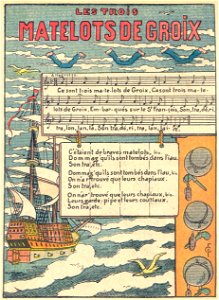 LES TROIS
MATELOTS DE GROIX
Ce sont trois ma-te-lots de Groix, Ce sont trois ma-te-
lots de Groix, Em-bar-qués sur le St Fran-çois, Son, tra, dé, ri,
tra, lon, lan, là, Son, tra, dé, ri, tra, lan, lai- re,
C'étaient de braves matelots,
Dommag' qu'ils sont tombés dans l'iau,
Son, tra, etc.
Dommag' qu'ils sont tombés dans l'iau,
On n'a r'trouvé que leurs chapiaux,
Son, tra, etc.
On n'a r'trouvé que leurs chapiaux,
Leurs garde-pipe et leurs coutiaux,
Son, tra, etc.